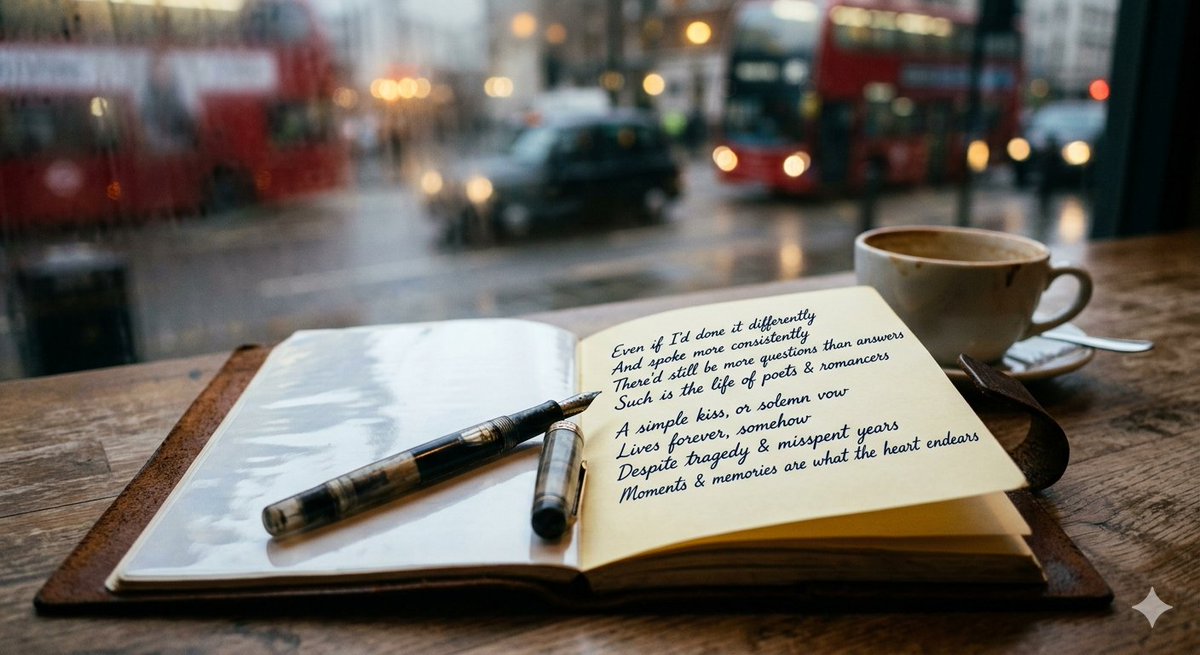 Even if I'd done it differently
And spoke more consistently
There'd still be more questions than answers
Such is the life of poets & romancers
A simple kiss, or solemn vow
Lives forever, somehow
Despite tragedy & misspent years
Moments & memories are what the heart endears